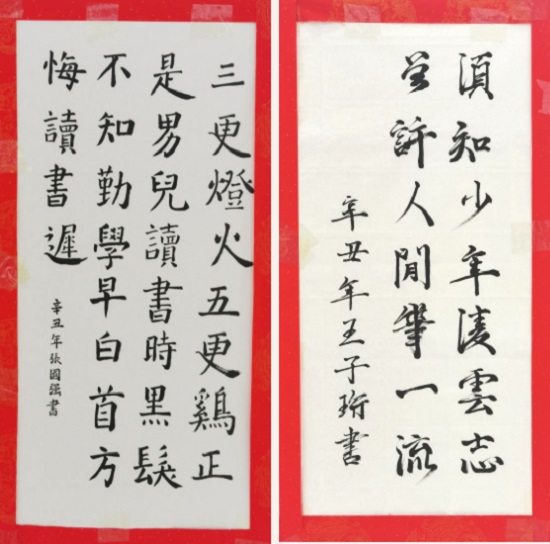 三更燈火五更鷄正
是男兒讀書時黑髮
不知勤學早白首方
悔讀書遲
辛丑年张國强書
須知少年凌雲志
曾許人間第一流
辛丑年王子珩书